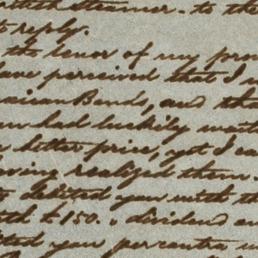 steamer - to the
to reply.
the tenor of my form
have perceived that I
Bonds, and tha
had luckily waite
better price, yet I
realized them.
debited you with th
£150. dividend an
you per contra